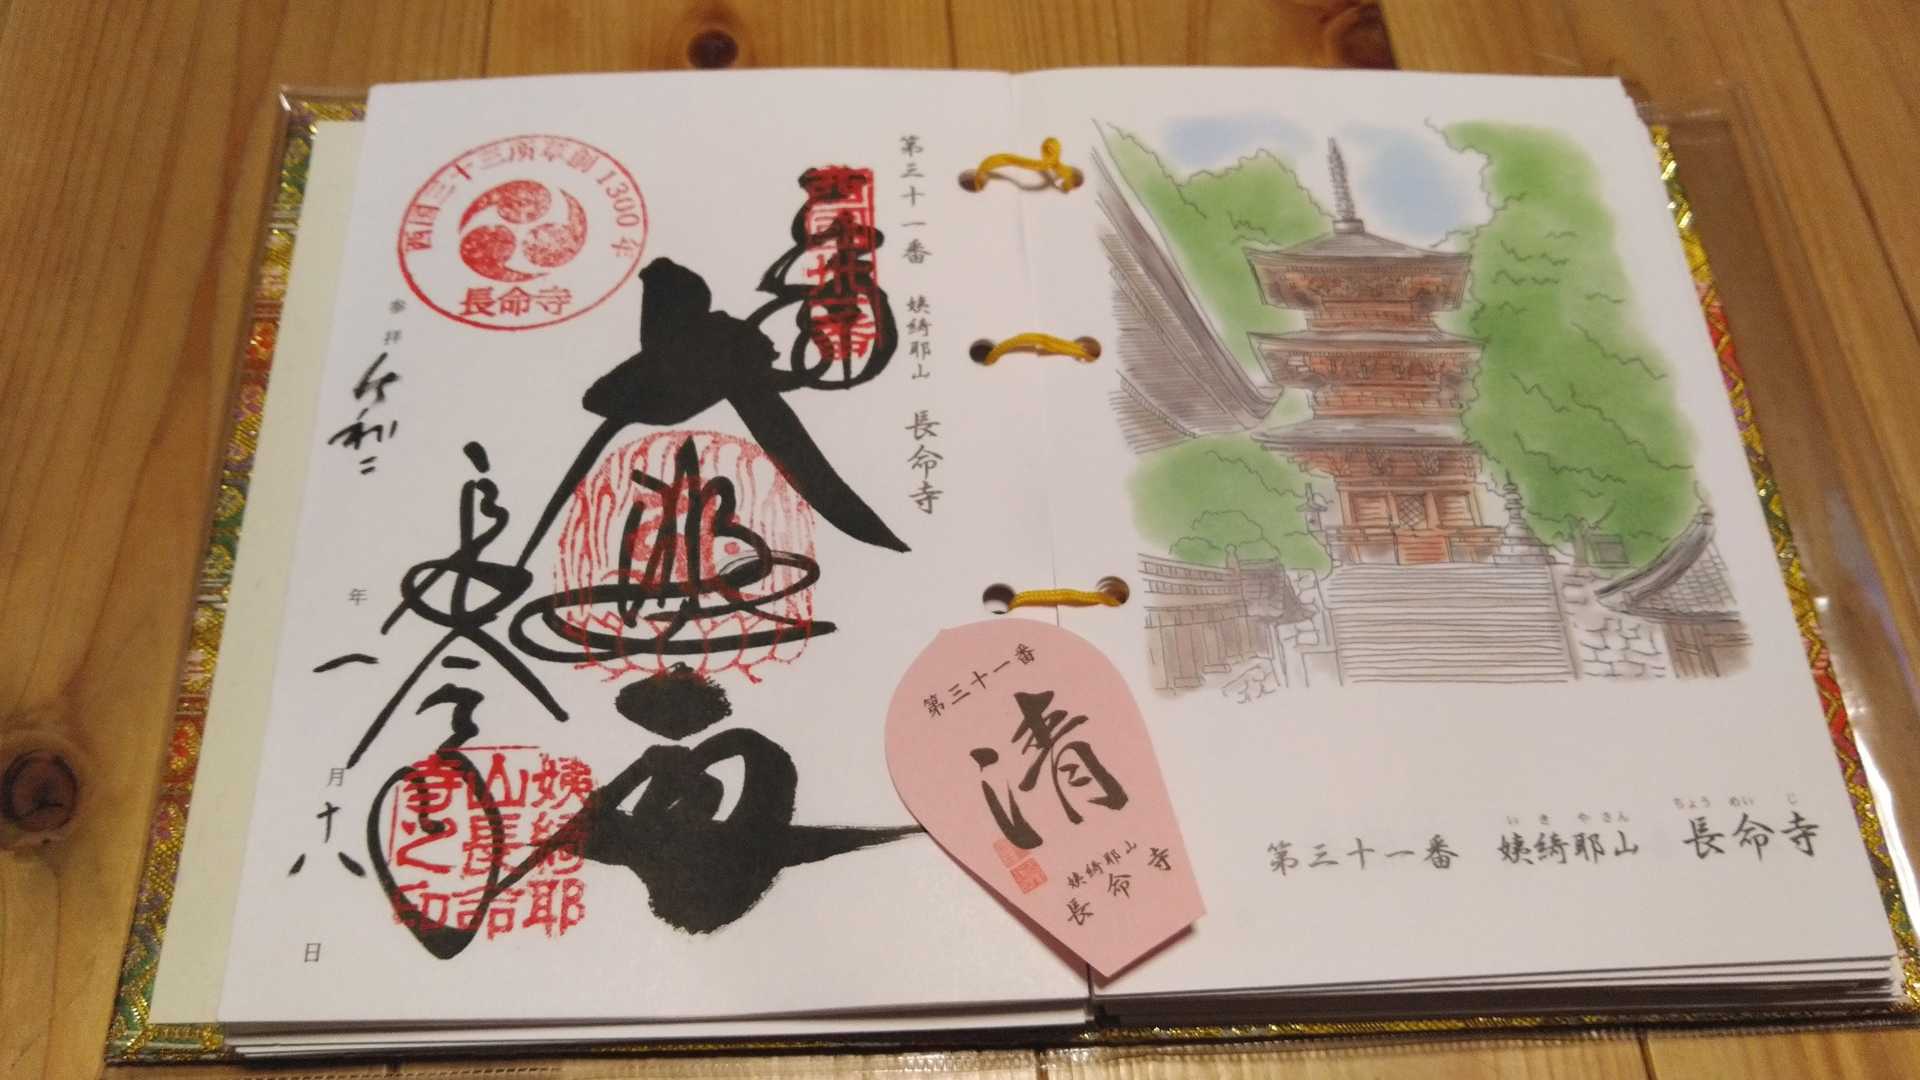 第三十一番 姨綺耶山 長命寺
西国三十三所草創1300年
長命寺
参拝 令和二年一月十八日
長命寺
姨綺耶
山長命
寺之印
第三十一番
清
姨綺耶山
長命寺
いきやさん ちょうめいじ
第三十一番 姨綺耶山 長命寺